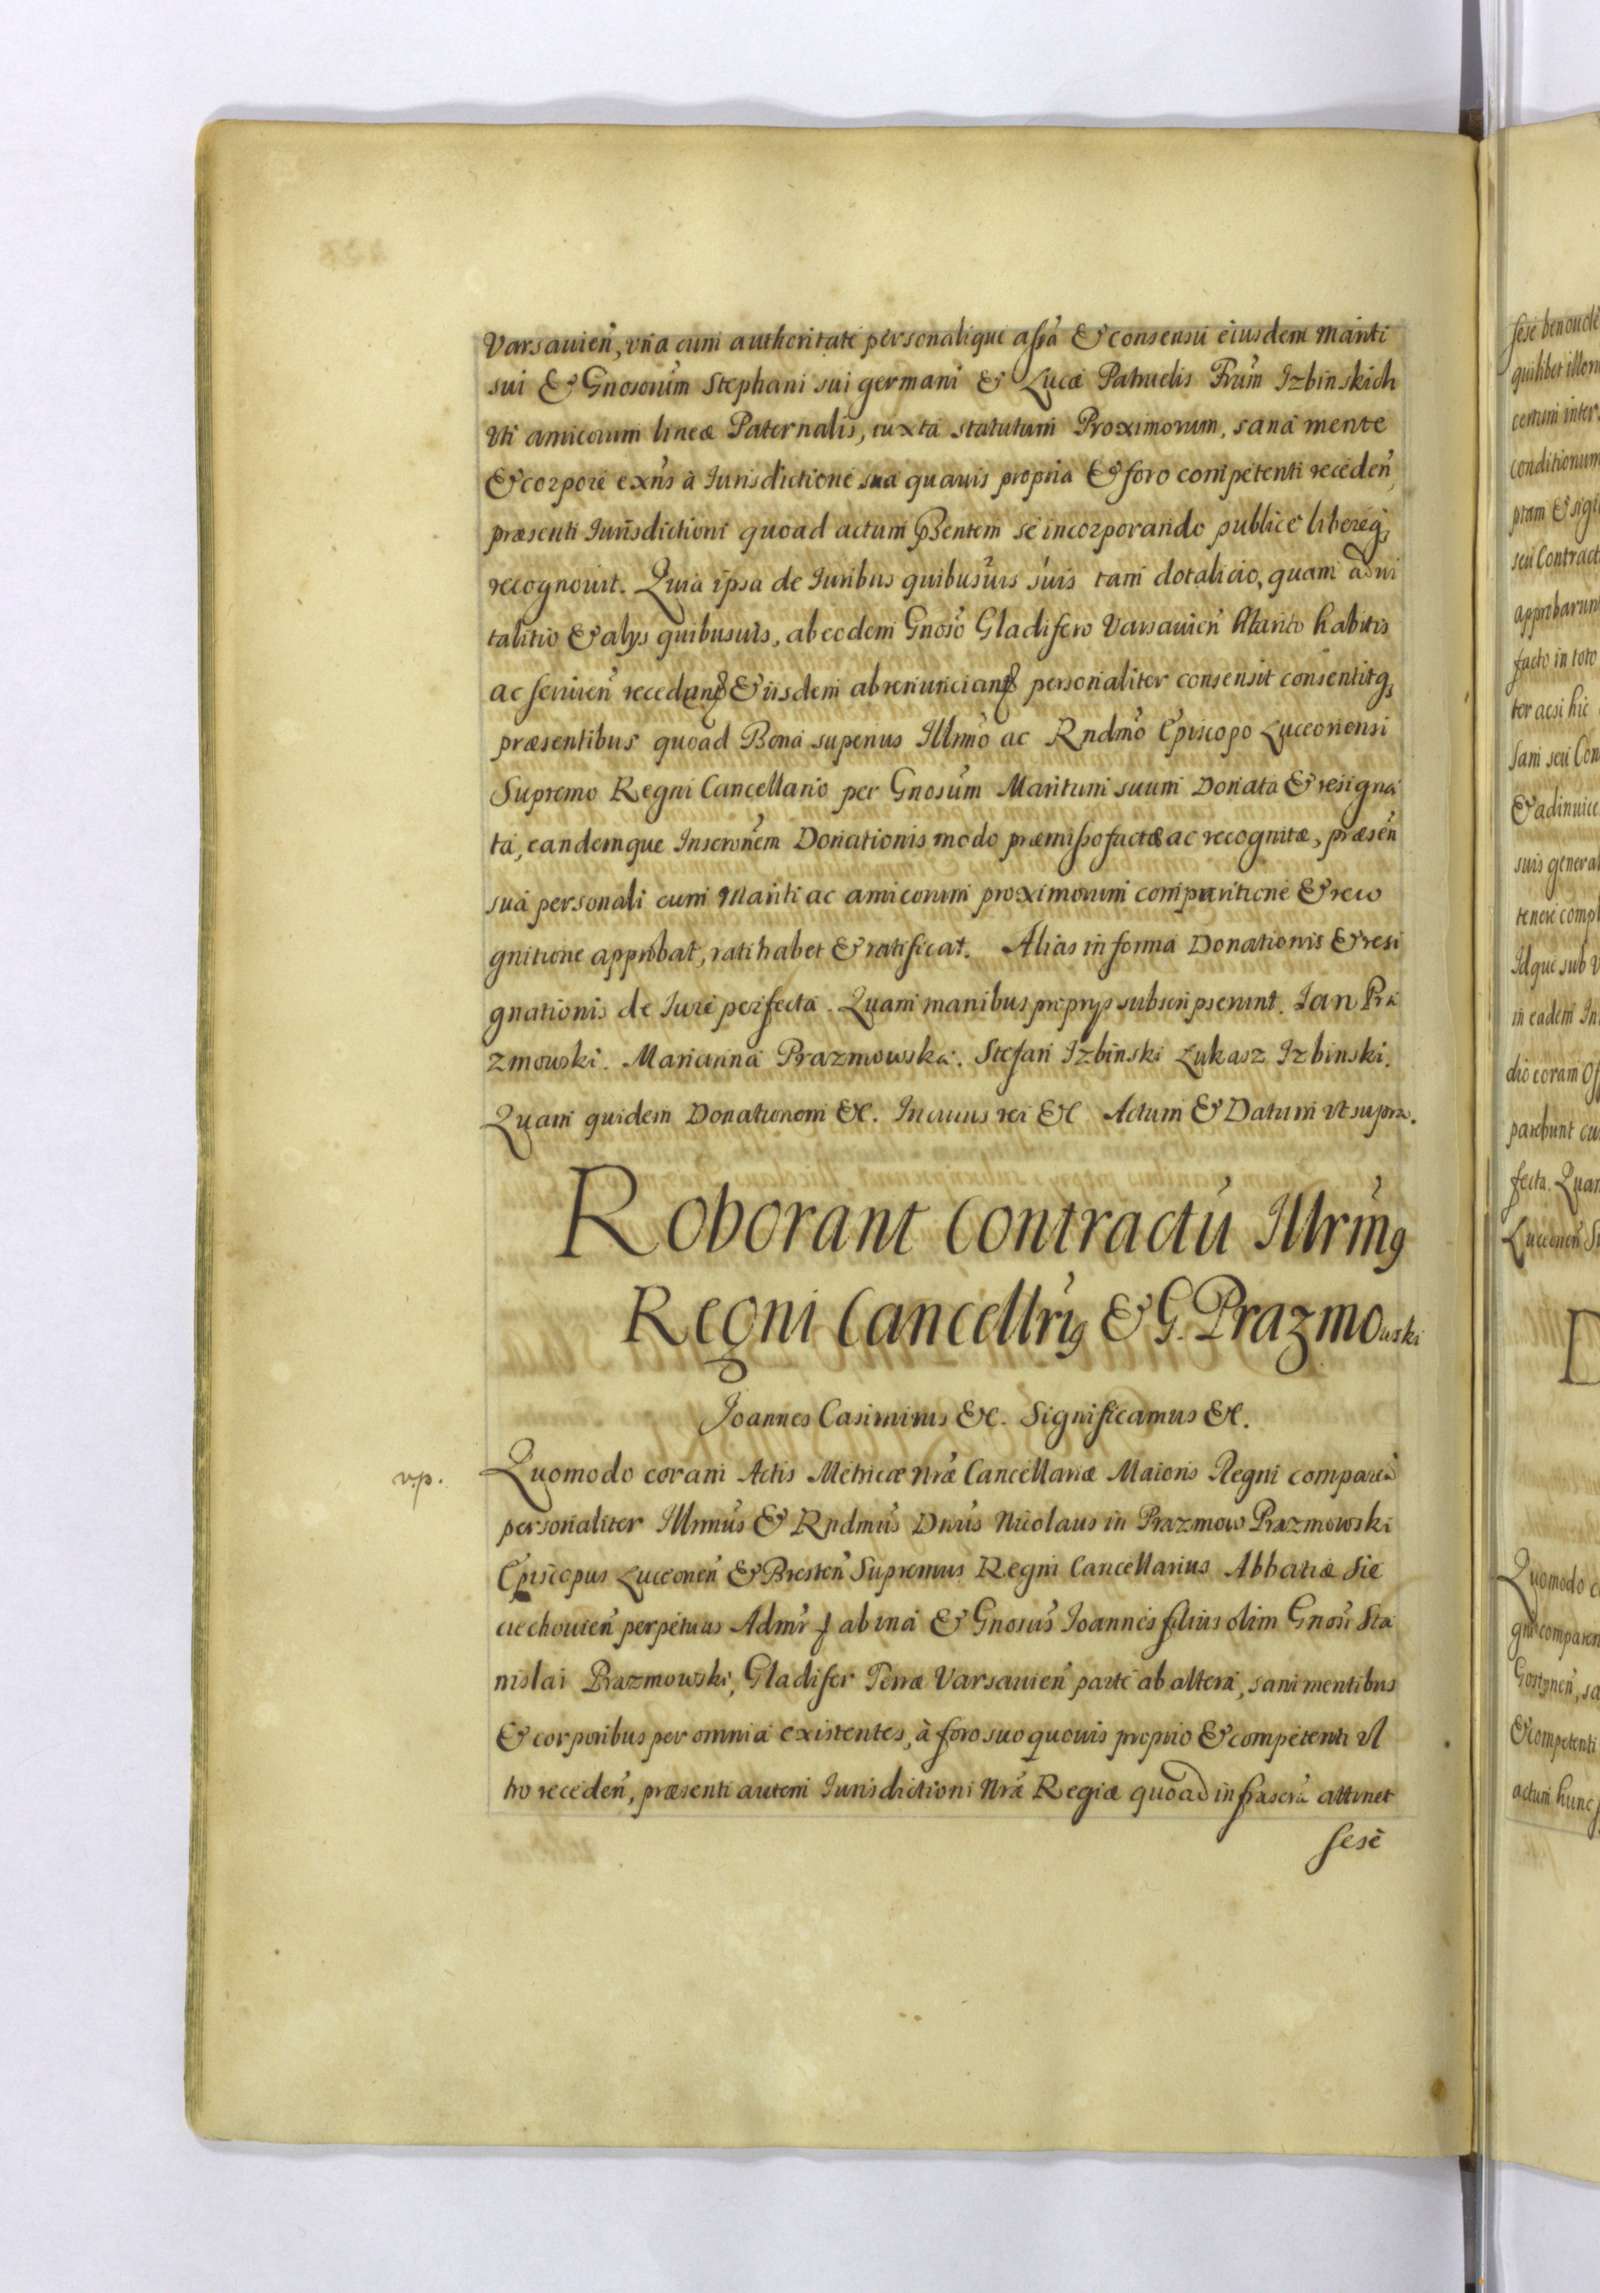 Varsauien̄, vna cum authoritate personalique assa̅ & consensu eiusdem Mariti
sui & Gnosorum̅ Stephani sui germani & Lucæ Patruelis Frūm Izbinskich
Vti amicorum lineæ Paternalis, iuxta statutum Proximorum, sana mente
& corpore exn̄s à Iurisdictione sua quauis propria & foro competenti receden̄,
præsenti Iurisdictioni quoad actum p̄sentem se incorporando publice libereq;
recognouit. Quia ipsa de Iuribus quibusuis suis tam dotalicio, quam advi
talitio & alys quibusuis, ab eodem Gnoso̅ Gladifero Varsauien̄ Marito habitis
ac seruien̄ recedens & iisdem abrenuncians personaliter consensit consentitq;
præsentibus quoad Bona superius Illrmo̅ ac Rndmo̅ Episcopo Luceoriensi
Supremo Regni Cancellario per Gnosum̅ Maritum suum Donata & resigna
ta, eandemque Inscronem̅ Donationis modo præmisso factæ ac recognitæ, præsen̄
sua personali cum Mariti ac amicorum proximorum comparitione & reco
gnitione approbat, ratihabet & ratificat. Alias in forma Donationis & resi
gnationis de Iure perfecta. Quam manibus proprys subscripserunt. Ian Pra
zmowski. Marianna Prazmowska. Stefan Izbinski Lukasz Izbinski.
Quam quidem Donationem &c. In cuius rei &c Actum & Datum vt supra.
Roborant Contractū Illrmg
Regni Cancellrig & G. Prazmowski
Ioannes Casimirus &c. Significamus &c.
vp.
Quomodo coram Actis Metricæ Nræ̅ Cancellariæ Maioris Regni comparen̄
personaliter Illrmus̅ & Rndmus̅ Dnus̅ Nicolaus in Prazmow Prazmowski
Episcopus Luceorien̄ & Bresten̄ Supremus Regni Cancellarius Abbatiæ Sie
ciechouien̄ perpetuus Admr̅ ab vna & Gnosus̅ Ioannes filius olim Gnosi̅ Sta
nislai Prazmowski, Gladifer Terræ Varsauien̄ parte ab altera, sani mentibus
& corporibus per omnia existentes, à foro suo quouis proprio & competenti vl
tro receden̄, præsenti autem Iurisdictioni Nræ̅ Regiæ quoad infrascra̅ attinet
sese